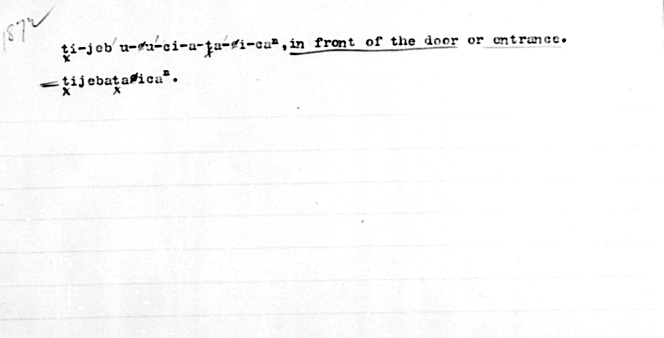 t͓í-jeb'u-¢u'-ci-a-t͓a'-¢i-caⁿ, in front of the door or entrance.
=t͓ijebat͓a¢icaⁿ.